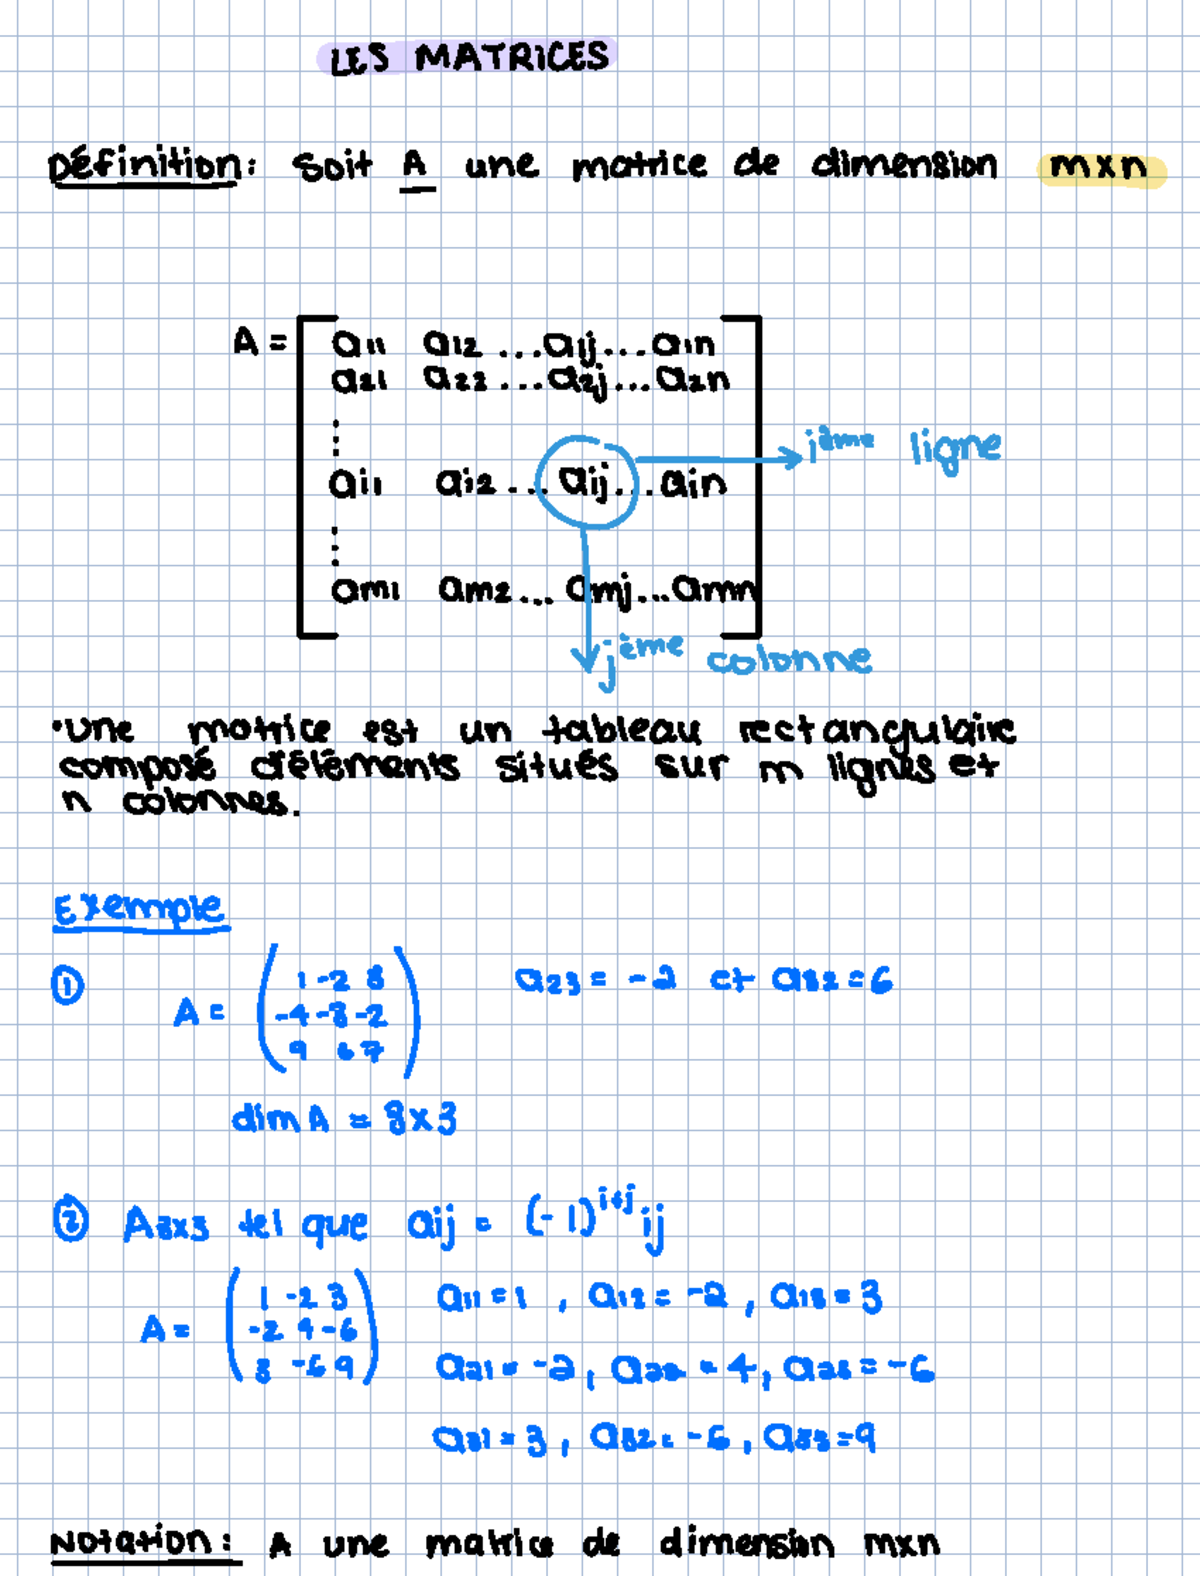 LES MATRICES
Définition: soit A une matrice de dimension mxn
A = [ a11 a12 ...a1j... a1n
a21 a22 ...a2j... a2n
⋮
ai1 ai2 ... aij ... ain ] → ième ligne
⋮
am1 am2... amj...amn
jème colonne
•une matrice est un tableau rectangulaire
composé d'éléments situés sur m lignes et
n colonnes.
Exemple
① A = ( 1 -2 3 a23 = -2 et a32 = 6
-4 -3 -2
9 6 7 )
dim A = 3x3
② A3x3 tel que aij = (-1)^i+j ij
A = ( 1 -2 3 a11 = 1 , a12 = -2 , a13 = 3
-2 4 -6
3 -6 9 ) a21 = -2 , a22 = 4 , a23 = -6
a31 = 3 , a32 = -6 , a33 = 9
Notation: A une matrice de dimension mxn